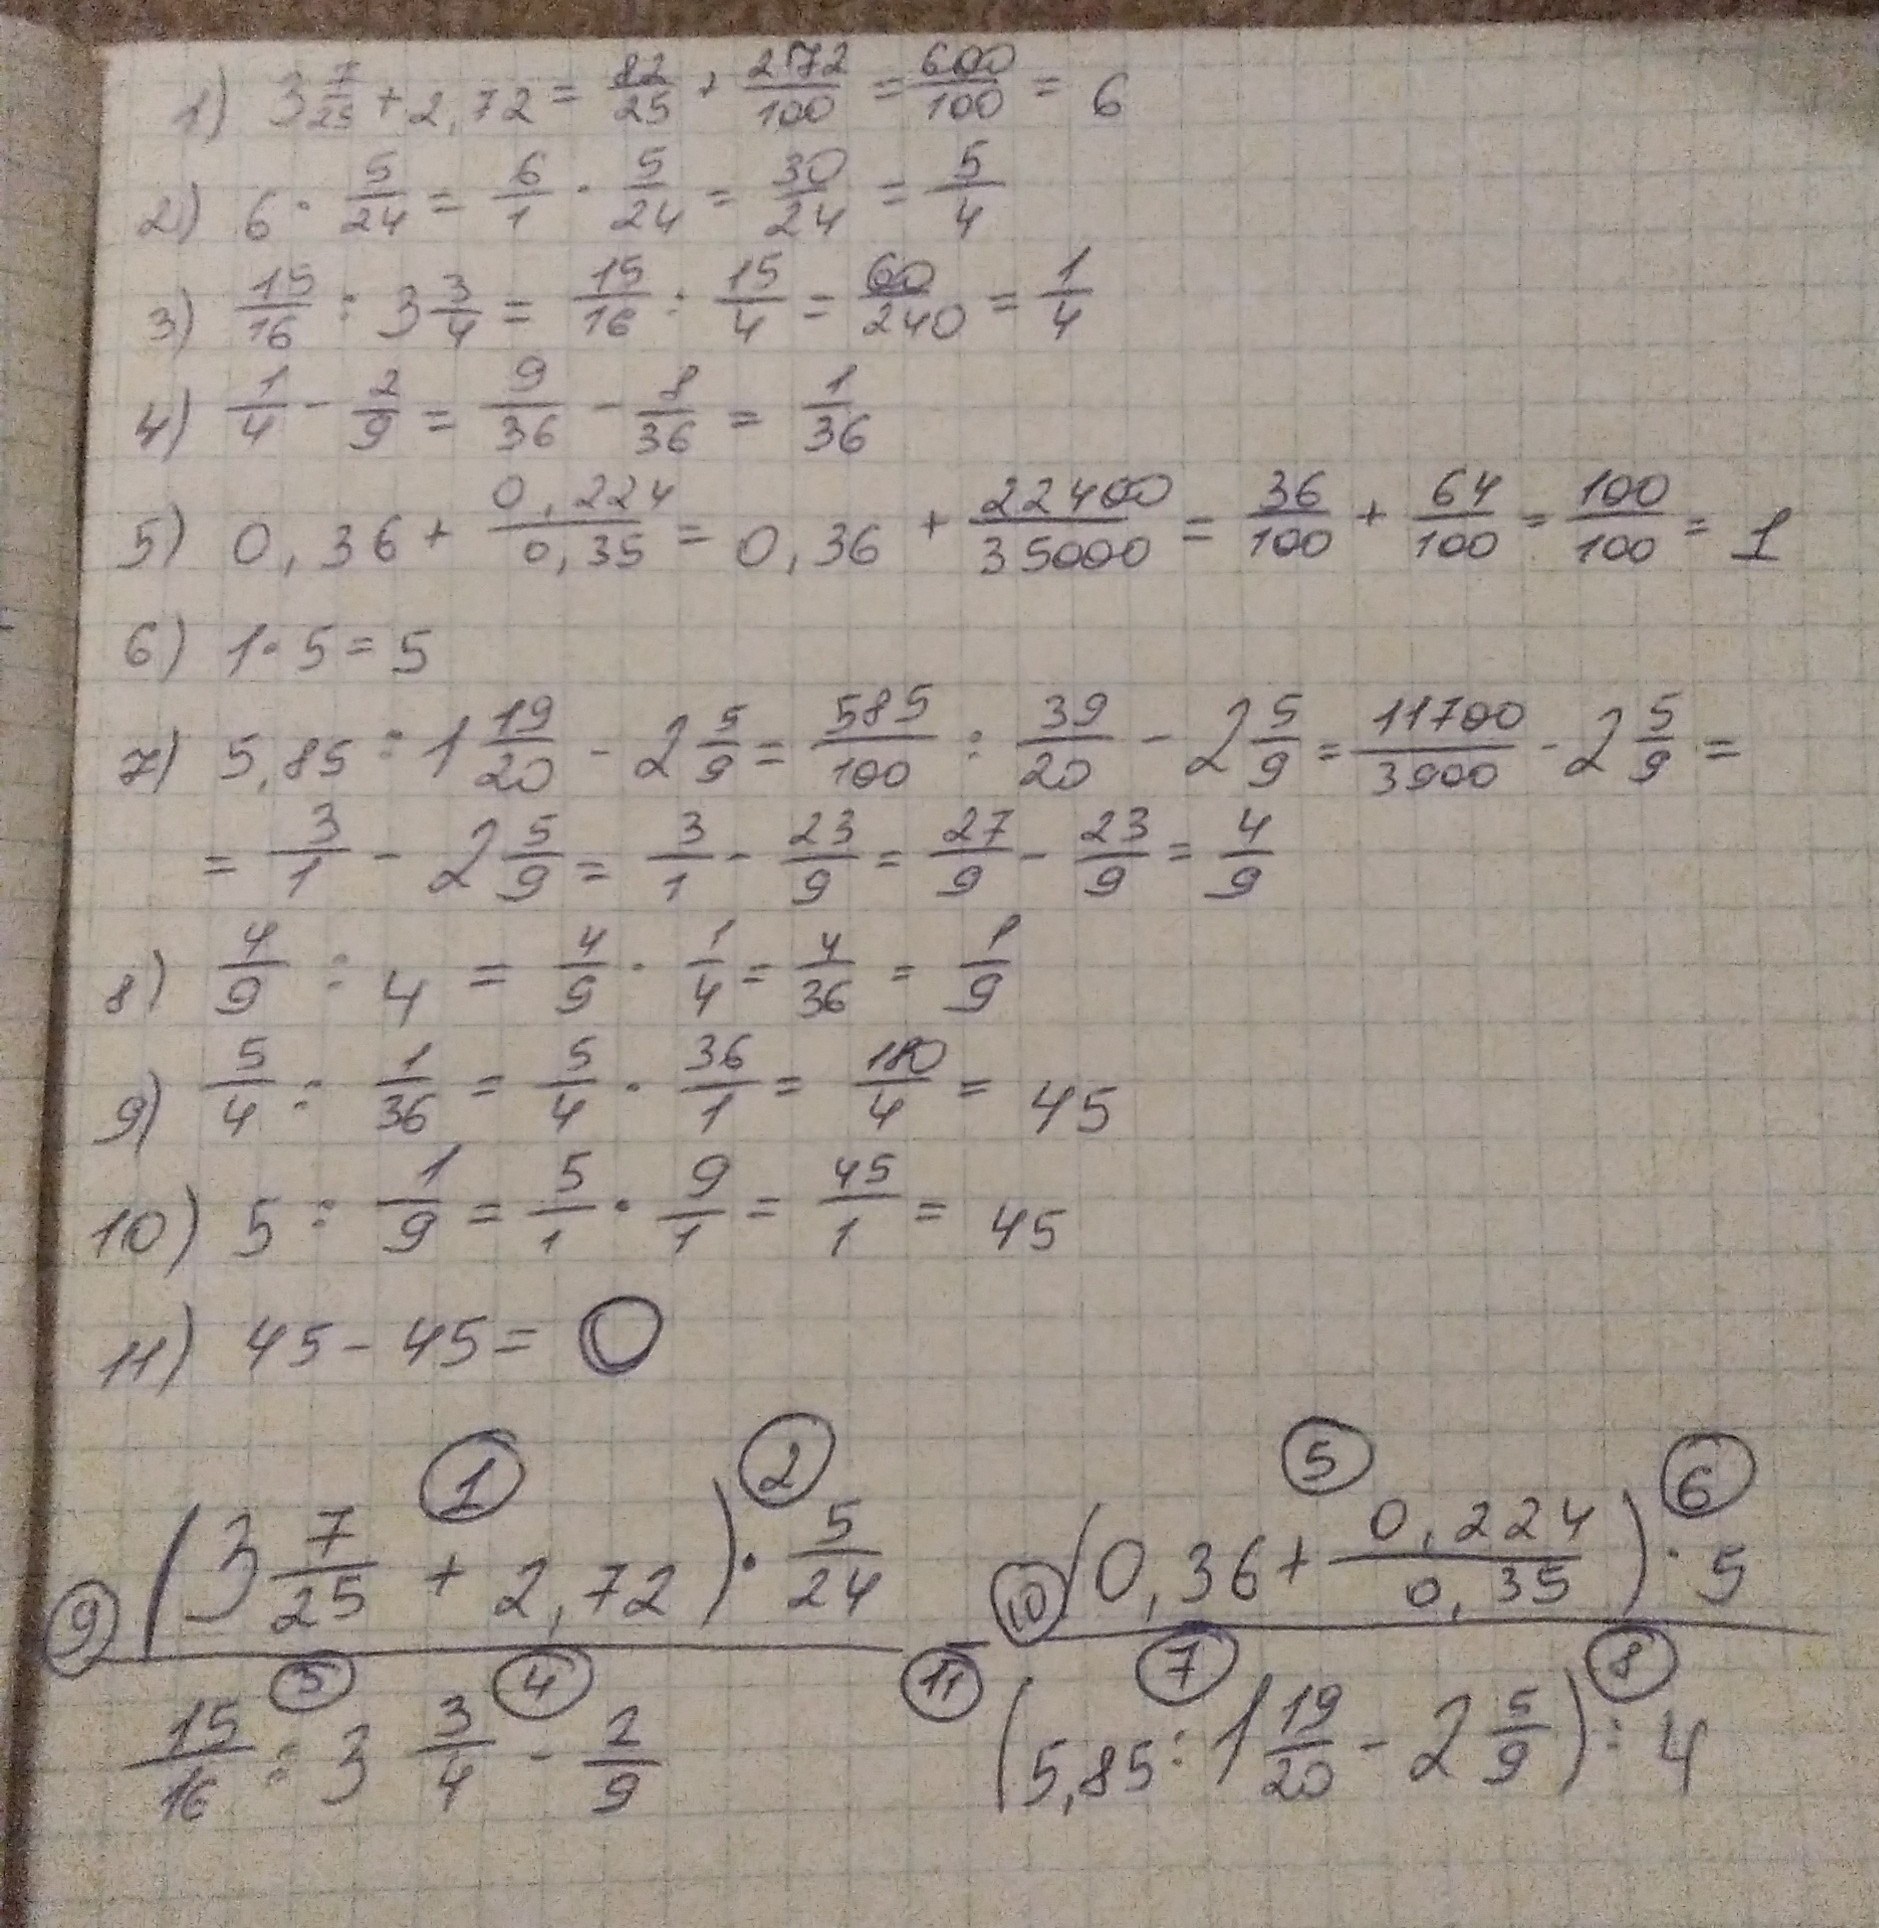 1) 3 7/25 + 2,72 = 82/25 + 272/100 = 600/100 = 6
2) 6 · 5/24 = 6/1 · 5/24 = 30/24 = 5/4
3) 15/16 : 3 3/4 = 15/16 : 15/4 = 60/240 = 1/4
4) 1/4 - 2/9 = 9/36 - 8/36 = 1/36
5) 0,36 + 0,224/0,35 = 0,36 + 22400/35000 = 36/100 + 64/100 = 100/100 = 1
6) 1 · 5 = 5
7) 5,85 : 1 19/20 - 2 5/9 = 585/100 : 39/20 - 2 5/9 = 11700/3900 - 2 5/9 =
= 3/1 - 2 5/9 = 3/1 - 23/9 = 27/9 - 23/9 = 4/9
8) 4/9 : 4 = 4/9 · 1/4 = 4/36 = 1/9
9) 5/4 : 1/36 = 5/4 · 36/1 = 180/4 = 45
10) 5 : 1/9 = 5/1 · 9/1 = 45/1 = 45
11) 45 - 45 = 0
1 2 5 6
(3 7/25 + 2,72) · 5/24 (0,36 + 0,224/0,35) · 5
9 - 10
3 4 11 7 8
15/16 : 3 3/4 - 2/9 (5,85 : 1 19/20 - 2 5/9) : 4